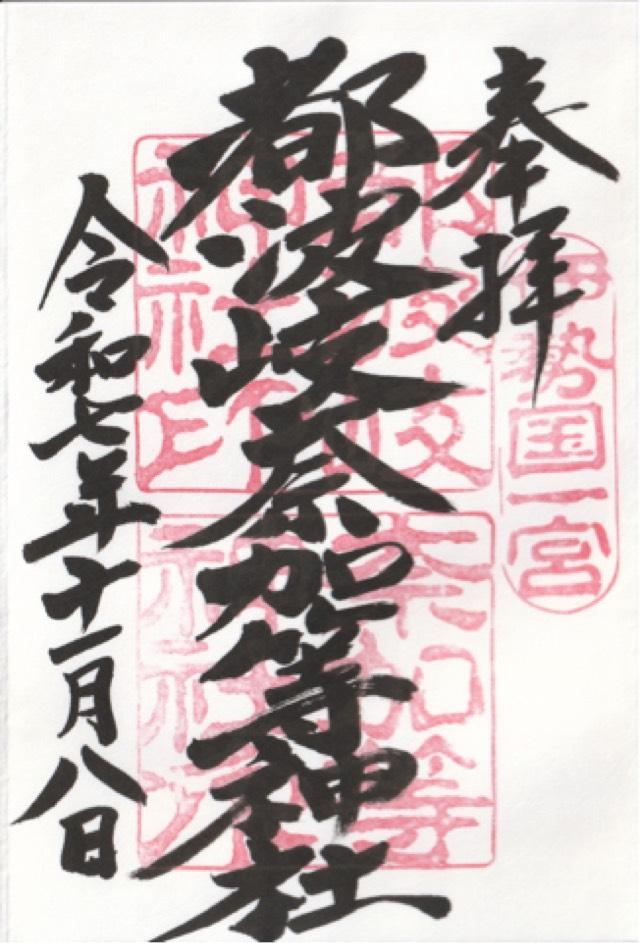 奉拝
伊勢国一宮
都波岐奈加等神社
都波岐
神社印
奈加等
神社
令和七年十一月八日